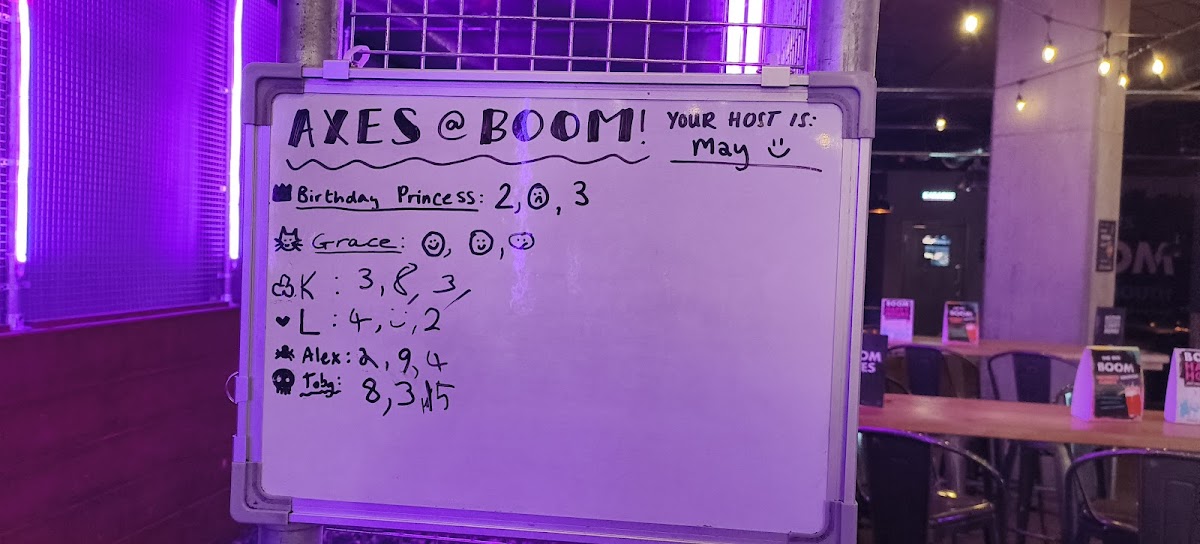 AXES @ BOOM!
YOUR HOST IS:
May
Birthday Princess: 2, , 3
Grace: , ,
K : 3, 8, 3
L : 4, , 2
Alex: 2, 9, 4
Toby: 8, 3, 15
BOOM
BOOM
BOOM